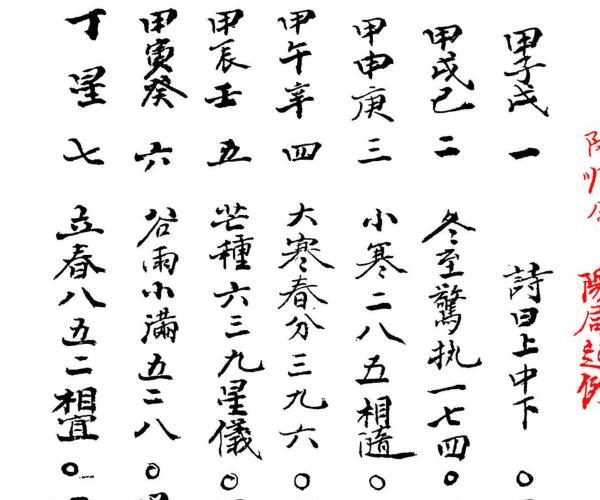 陽局起例
甲子戊 一 詩曰上中下○
甲戌己 二 冬至驚执一七四○
甲申庚 三 小寒二八五相隨○
甲午辛 四 大寒春分三九六○
甲辰壬 五 芒種六三九星儀○
甲寅癸 六 谷雨小滿五二八○
丁星 七 立春八五二相宜○